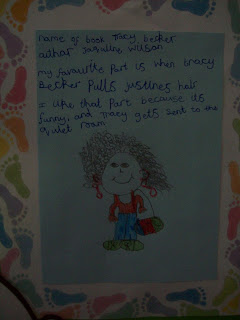 name of book Tracy becker
author Jaquline wilson
my favourite Part is when tracy
Becker Pulls Justines hair
I like that Part because its
funny, and Tracy gets sent to the
quiet room